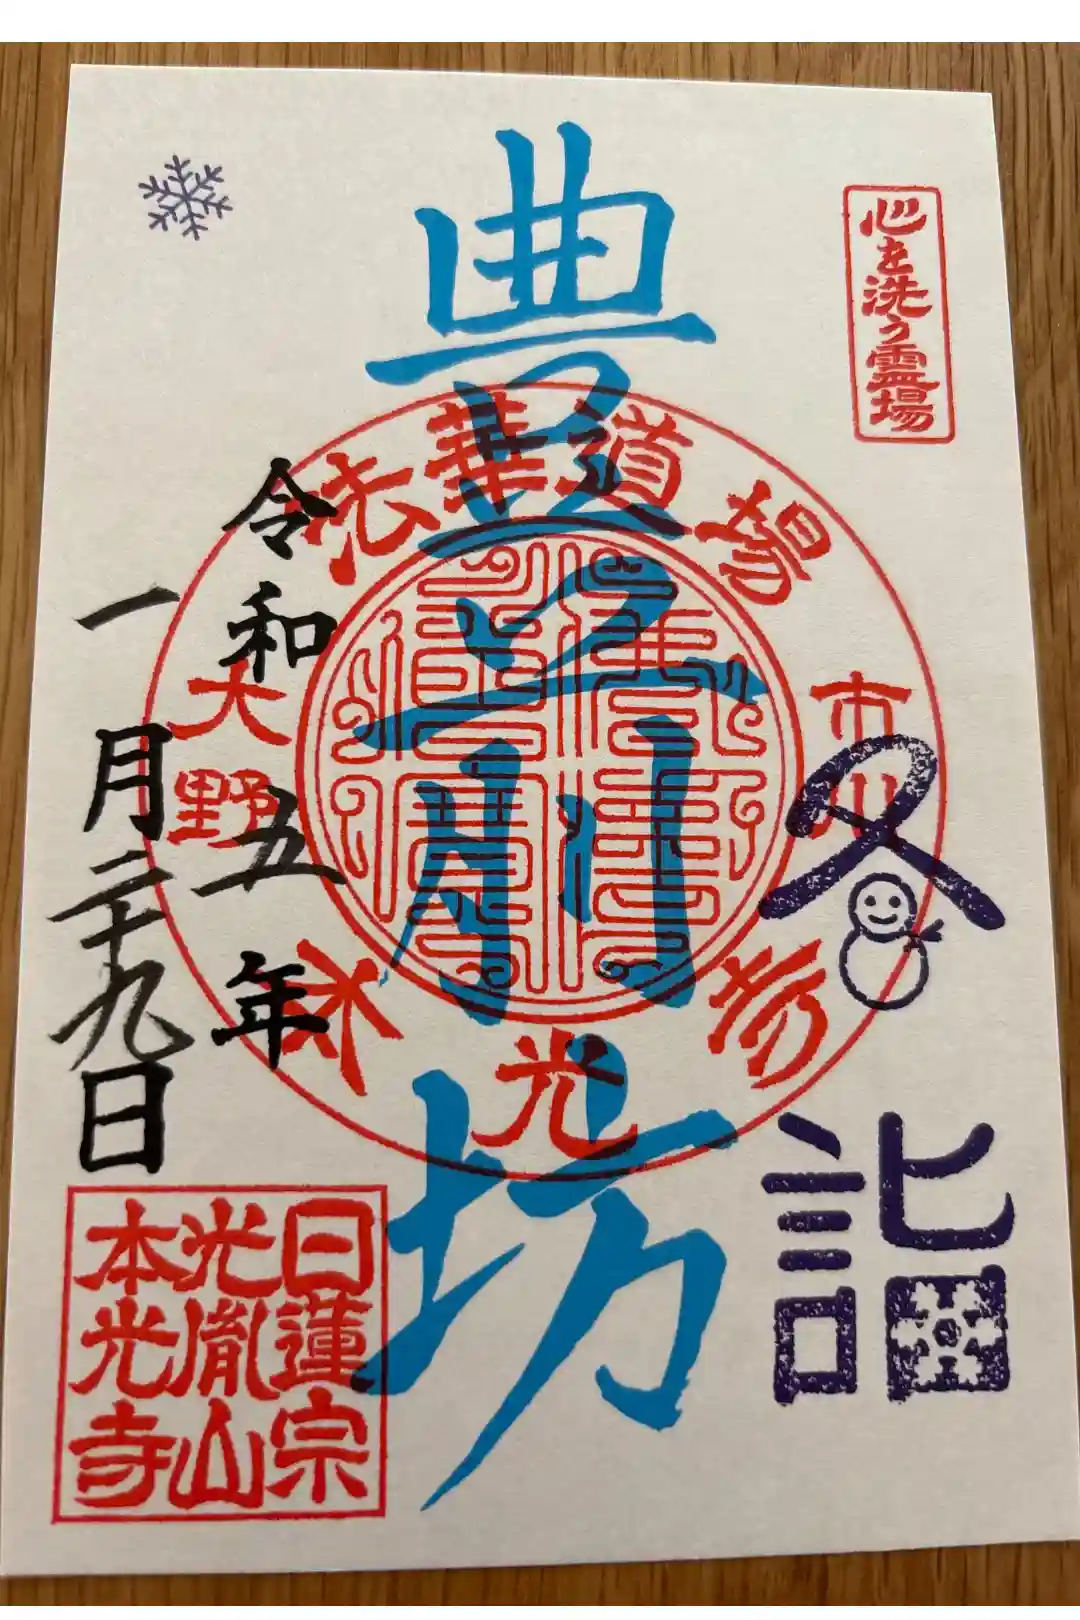 心を洗う霊場
冬詣
豊前坊
法華道場
市川
大野
本光寺
令和五年
一月二十九日
日蓮宗
光胤山
本光寺